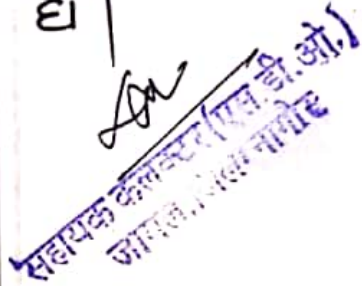 हो।
सहायक कलक्टर (एस.डी.ओ.)
जायल, जिला नागौर